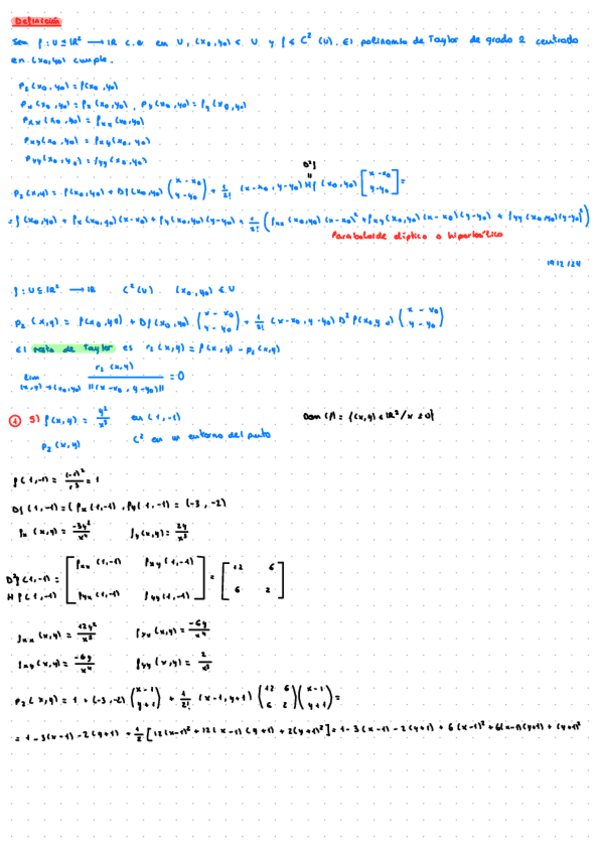 Definición
Sea f: U ⊆ ℝ² → ℝ c.a. en U, (x₀,y₀) ∈ U y f ∈ C²(U). El polinomio de Taylor de grado 2 centrado
en (x₀,y₀) cumple.
P₂(x₀,y₀) = f(x₀,y₀)
Pₓ(x₀,y₀) = fₓ(x₀,y₀), Pᵧ(x₀,y₀) = fᵧ(x₀,y₀)
Pₓₓ(x₀,y₀) = fₓₓ(x₀,y₀)
Pₓᵧ(x₀,y₀) = fₓᵧ(x₀,y₀)
Pᵧᵧ(x₀,y₀) = fᵧᵧ(x₀,y₀)
D²f
=
P₂(x,y) = f(x₀,y₀) + Df(x₀,y₀) (x-x₀ / y-y₀) + 1/2! (x-x₀, y-y₀) Hf(x₀,y₀) [x-x₀ / y-y₀] =
= f(x₀,y₀) + fₓ(x₀,y₀)(x-x₀) + fᵧ(x₀,y₀)(y-y₀) + 1/2! (fₓₓ(x₀,y₀)(x-x₀)² + fₓᵧ(x₀,y₀)(x-x₀)(y-y₀) + fᵧᵧ(x₀,y₀)(y-y₀)²)
Paraboloide elíptico o hiperbólico
19/12/24
f: U ⊆ ℝ² → ℝ C²(U) (x₀,y₀) ∈ U
P₂(x,y) = f(x₀,y₀) + Df(x₀,y₀) (x-x₀ / y-y₀) + 1/2! (x-x₀, y-y₀) D²f(x₀,y₀) (x-x₀ / y-y₀)
El resto de Taylor es r₂(x,y) = f(x,y) - P₂(x,y)
lim (x,y)→(x₀,y₀) r₂(x,y) / ||(x-x₀, y-y₀)|| = 0
① 5) f(x,y) = y²/x³ en (1,-1) Dom(f) = {(x,y) ∈ ℝ² / x ≠ 0}
P₂(x,y) C² en un entorno del punto
f(1,-1) = (-1)²/1³ = 1
Df(1,-1) = (fₓ(1,-1), fᵧ(1,-1) = (-3, -2)
fₓ(x,y) = -3y²/x⁴ fᵧ(x,y) = 2y/x³
D²f(1,-1) = [fₓₓ(1,-1) fₓᵧ(1,-1)] = [12 6]
Hf(1,-1) [fᵧₓ(1,-1) fᵧᵧ(1,-1)] [6 2]
fₓₓ(x,y) = 12y²/x⁵ fᵧₓ(x,y) = -6y/x⁴
fₓᵧ(x,y) = -6y/x⁴ fᵧᵧ(x,y) = 2/x³
P₂(x,y) = 1 + (-3,-2) (x-1 / y+1) + 1/2! (x-1, y+1) (12 6 / 6 2) (x-1 / y+1) =
= 1-3(x-1)-2(y+1) + 1/2 [12(x-1)² + 12(x-1)(y+1) + 2(y+1)²] = 1-3(x-1)-2(y+1) + 6(x-1)² + 6(x-1)(y+1) + (y+1)²